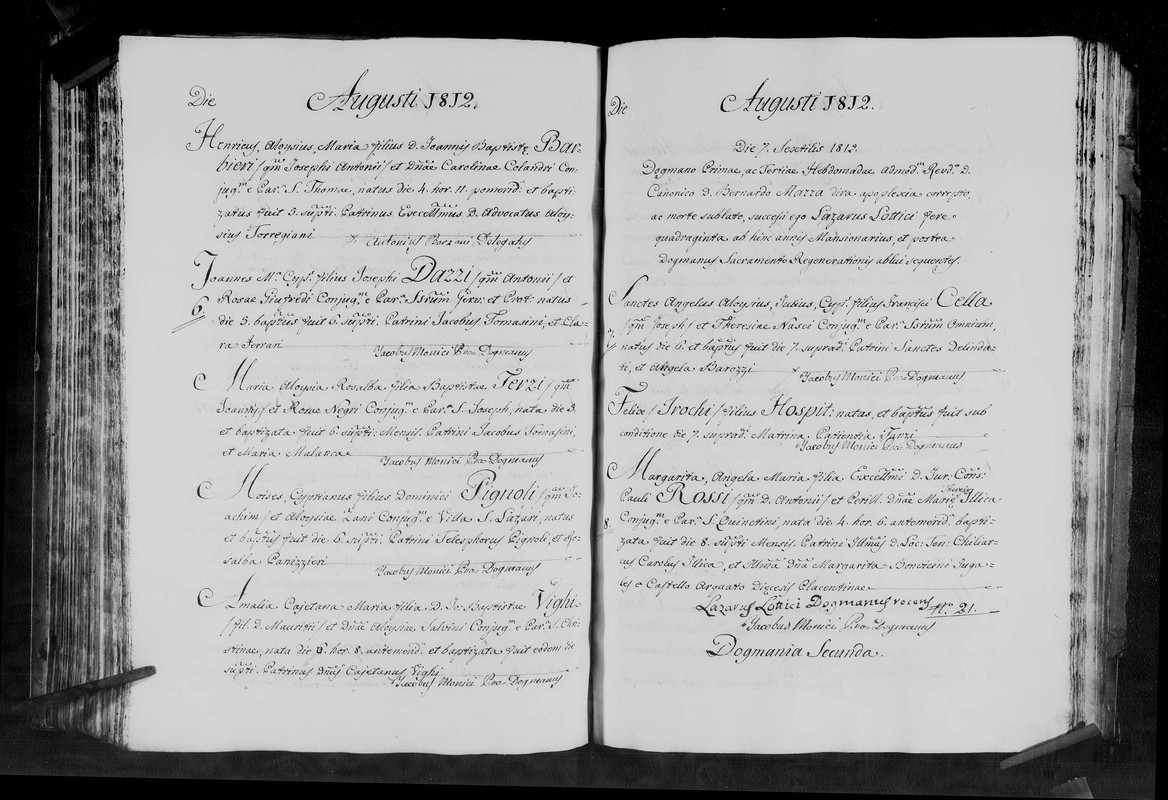 Die Augusti 1812.
Henricus, Aloysius, Maria filius D. Joannis Baptistę Bar-
bieri / qm̃ Josephi Antonii / et Dñæ Carolinae Colandri Con-
jug.m e Par.a S. Thomæ, natus die 4. hor. 11. pomerid.s et bapti-
zatus fuit 5. supti. Patrinus Excellm̃us D. Advocatus Aloy-
sius Torregiani
Antonius Borzani Delegatus
Joannes M.a Cyp.s filius Josephi Dazzi / qm̃ Antonii / et
Rosae Giustredi Conjug.m e Par.a Sstrum Gerv: et Prot: natus
6.
die 5. baptus fuit 6. supti: Patrini Jacobus Tomasini, et Cla-
ra Ferrari
Jacobus Monici Pro-Dogmanus
Maria Aloysia Rosalba filia Baptistae Terzi / qm̃
Joannis / et Rosae Negri Conjug.m e Par.a S. Joseph, nata die 5.
et baptizata fuit 6. supti: Mensis. Patrini Jacobus Tomasini,
et Maria Malanca
Jacobus Monici Pro-Dogmanus
Moises, Cyprianus filius Dominici Pignoli / qm̃ Jo-
achim / et Aloysiae Zani Conjug.m e Villa S. Lazari, natus
et baptus fuit die 6. supti: Patrini Telesphorus Pignoli, et Ro-
salba Panizzieri
Jacobus Monici Pro-Dogmanus
Amalia Cajetana Maria filia D. Jo: Baptistae Vighi
/ fil. D. Mauritii / et Dñæ Aloysiae Salvini Conjug.m e Par.a S. Chri-
stinae, nata die 6. hor. 8. antemerid.s et baptizata fuit eodem die
supti: Patrinus Dñus Cajetanus Vighi
Jacobus Monici Pro-Dogmanus
Die Augusti 1812.
Die 7. Sextilis 1812.
Dogmano Primae, ac Tertiae Hebdomadae Admod.m Rev.do D.
Canonico D. Bernardo Mazza dira apoplexia correpto,
ac morte sublato, successi ego Lazarus Lottici fere
quadraginta ab hinc annis Mansionarius, et postea
Dogmanus Sacramento Regenerationis ablui sequentes.
Sanctes Angelus Aloysius, Julius, Cyp.s filius Francisci Cella
/ qm̃ Joseph / et Theresiae Nasei Conjug.m e Par.a Sstrum Omnium,
7.
natus die 6. et baptus fuit die 7. suprad.s Patrini Sanctes Delinda-
ti, et Angela Barozzi
Jacobus Monici Pro-Dogmanus
Felice / Irochi / filius Hospit: natus, et baptus fuit sub
conditione die 7. suprad.s Matrina Patientia Tanzi
Jacobus Monici Pro-Dogmanus
Margarita, Angela Maria filia Excellm̃i D. Jur: Cons:
Pauli Rossi / qm̃ D. Antonii / et Perill. Dñæ Mariæ Theresiæ Illica
8.
Conjug.m e Par.a S. Quintini, nata die 4. hor. 6. antemerid.s bapti-
zata fuit die 8. supti Mensis. Patrini Illm̃us D. Loc: Ten: Chiliar-
cus Carolus Illica, et Illm̃a Dña Margarita Bonvicini Juga-
les e Castello Arquato Diœcesis Placentinae
Lazarus Lottici Dogmanus vocens
N.o 21.
Jacobus Monici Pro-Dogmanus
Dogmania Secunda.